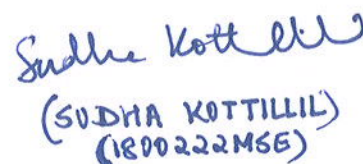 Sudha Kottillil
(SUDHA KOTTILLIL)
(1800222MSE)